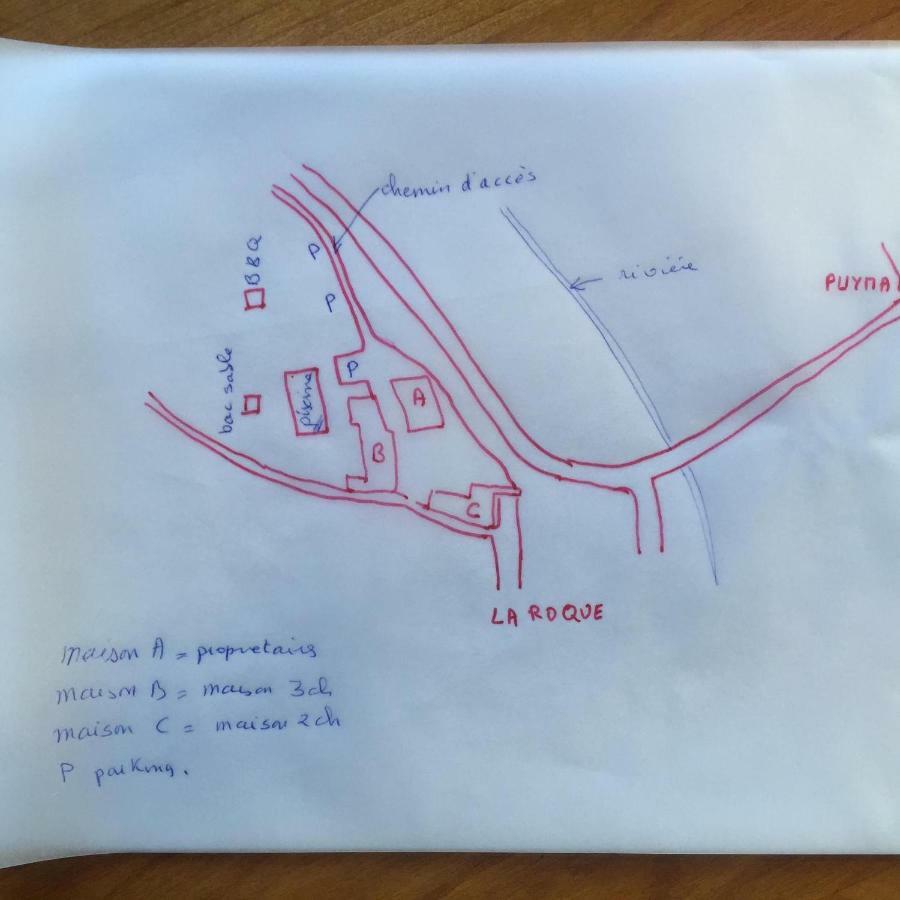 chemin d'accès
BBQ
P
rivière
PUYMA
P
bac sable
piscine
P
A
B
C
LA ROQUE
maison A = proprietairs
maison B = maison 3ch
maison C = maison 2ch
P parking.